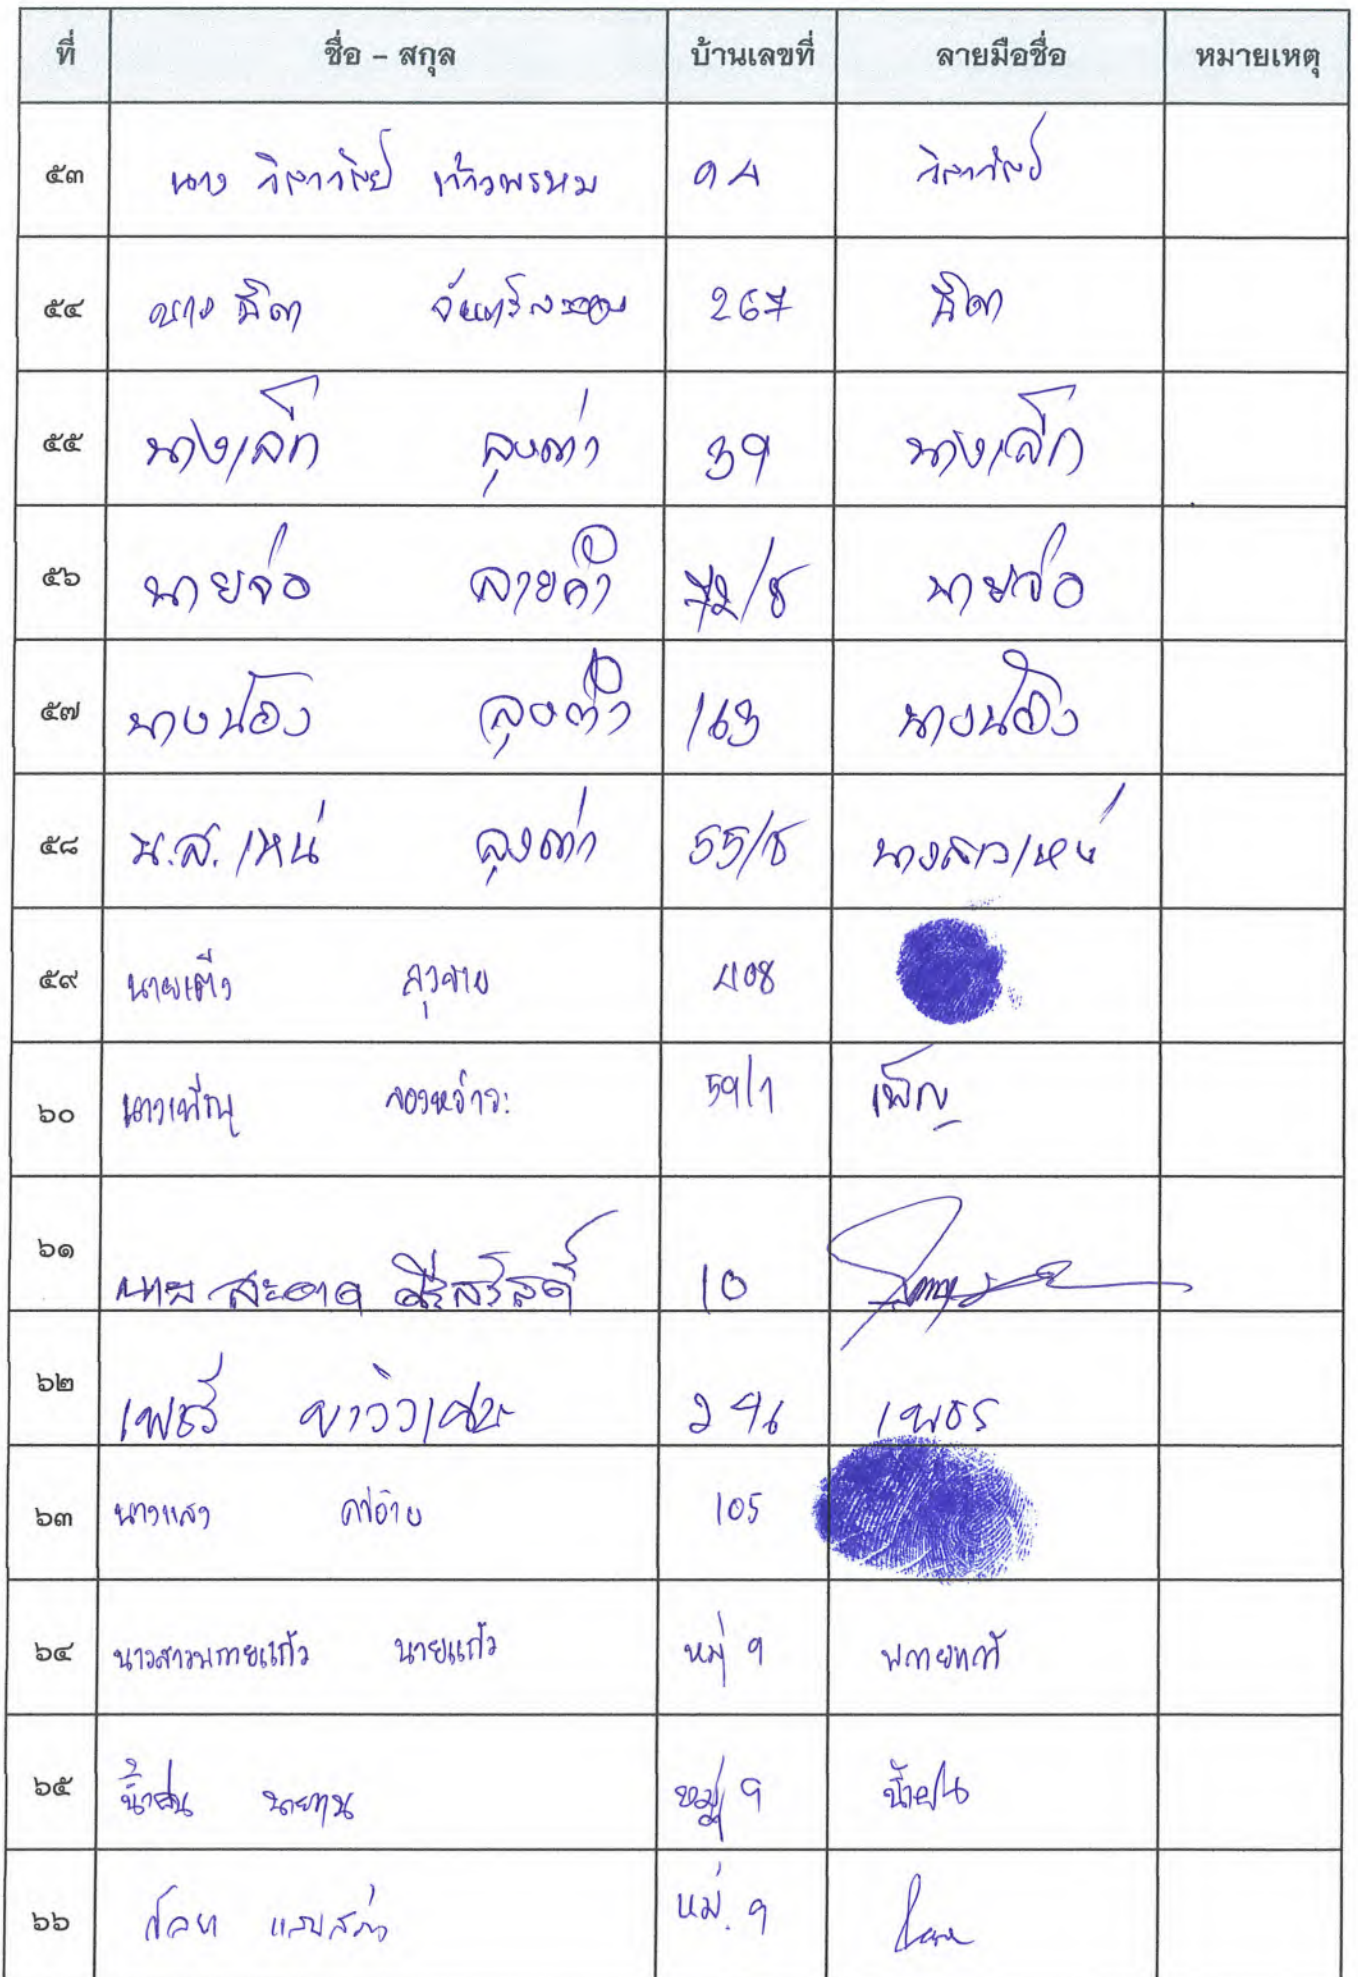 ที่ ชื่อ – สกุล บ้านเลขที่ ลายมือชื่อ หมายเหตุ
๕๓ นาง วิลาวัลย์ ท้าวพรหม ๑๘ วิลาวัลย์
๕๔ นาง ธิดา 267 ธิดา
๕๕ นางเล็ก ลุงต่า 39 นางเล็ก
๕๖ นายจ่อ ลายคำ 72/8 นายจ่อ
๕๗ นางน้อง ลุงต๋า 163 นางน้อง
๕๘ น.ส.เหน่ ลุงต่า 55/8 นางสาวเหน่
๕๙ นายเติ๋ง 408
๖๐ นางเพ็ญ ลองหว่าวะ 59/1 เพ็ญ
๖๑ นาย สะอาด ศรีสวัสดิ์ 10
๖๒ เพชร์ 296 เพชร
๖๓ นางแสง คำอ้าย 105
๖๔ นางสาวพกายแก้ว นายแก้ว หมู่ 9
๖๕ น้ำฝน หมู่ 9 น้ำฝน
๖๖ หมู่. 9